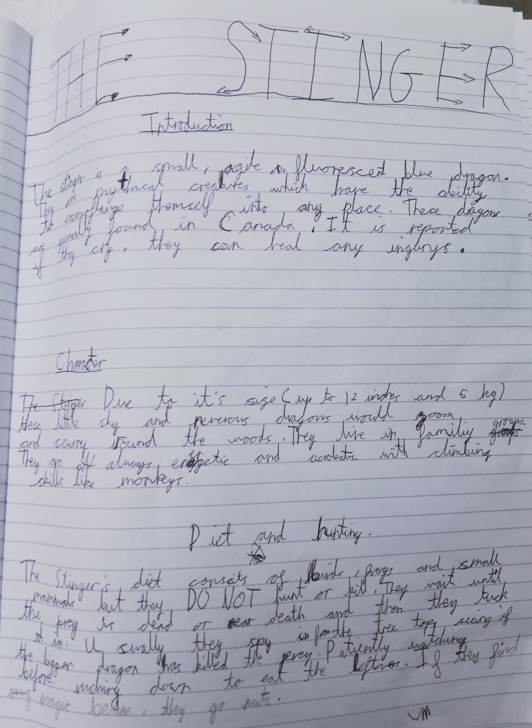 THE STINGER
Introduction
The stinger is a small, agile fluorescent blue dragon.
They are mythical creatures which have the ability
to camoflage themself into any place. These dragons
are usually found in Canada. It is reported
if they cry, they can heal any injurys.
Character
The Due to it's size (up to 12 inches and 5 kg)
these little shy and nervous dragons would zoom
and scurry around the woods. They live in familiy groups.
They are always energetic and acrobatic with climbing
skills like monkeys.
Diet and hunting.
The Stinger's diet consits of birds, frogs and small
mammals but they DO NOT hunt or kill. They wait until
the prey is dead or near death and then they tuck
it in. Usually they spy in the tree tops seeing if
the bigger dragon has killed the prey. Patiently watching
before rushing down to eat the leftovers. If they find
magic beans, they go nuts.